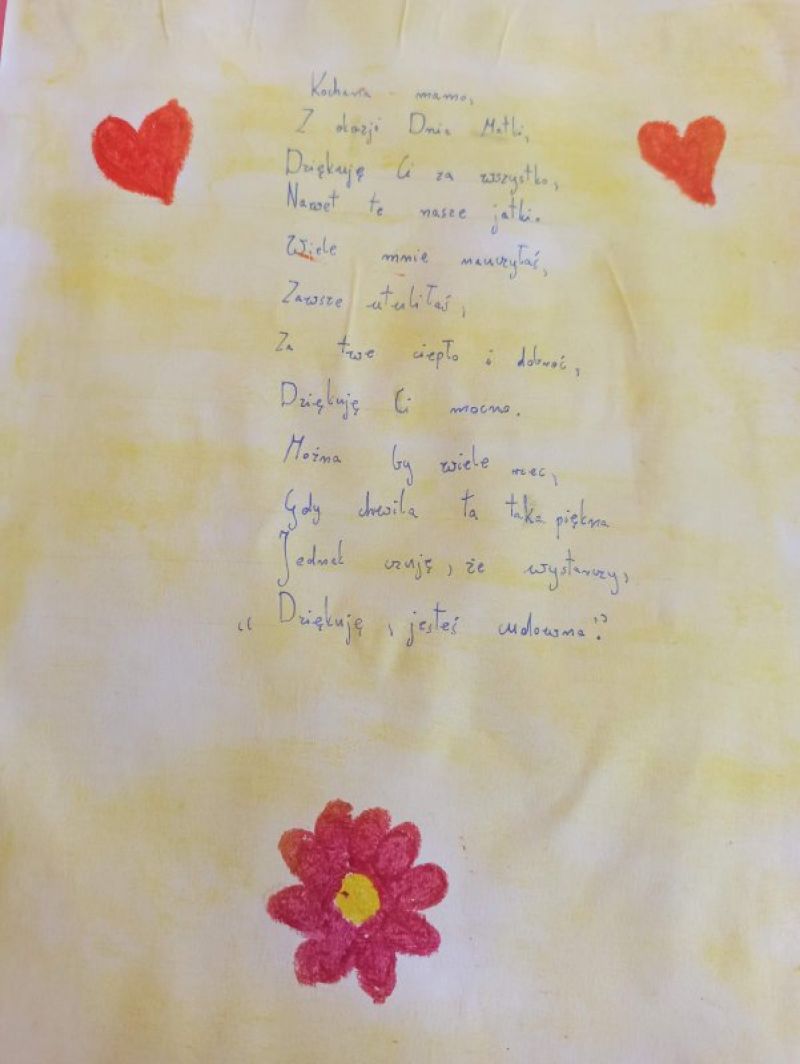 Kochana mamo,
Z okazji Dnia Matki,
Dziękuję Ci za wszystko,
Nawet te nasze jatki.
Wiele mnie nauczyłaś,
Zawsze utuliłaś,
Za twe ciepło i dobroć,
Dziękuję Ci mocno.
Można by wiele rzec,
Gdy chwila ta taka piękna
Jednak czuję, że wystarczy,
"Dziękuję, jesteś cudowna".